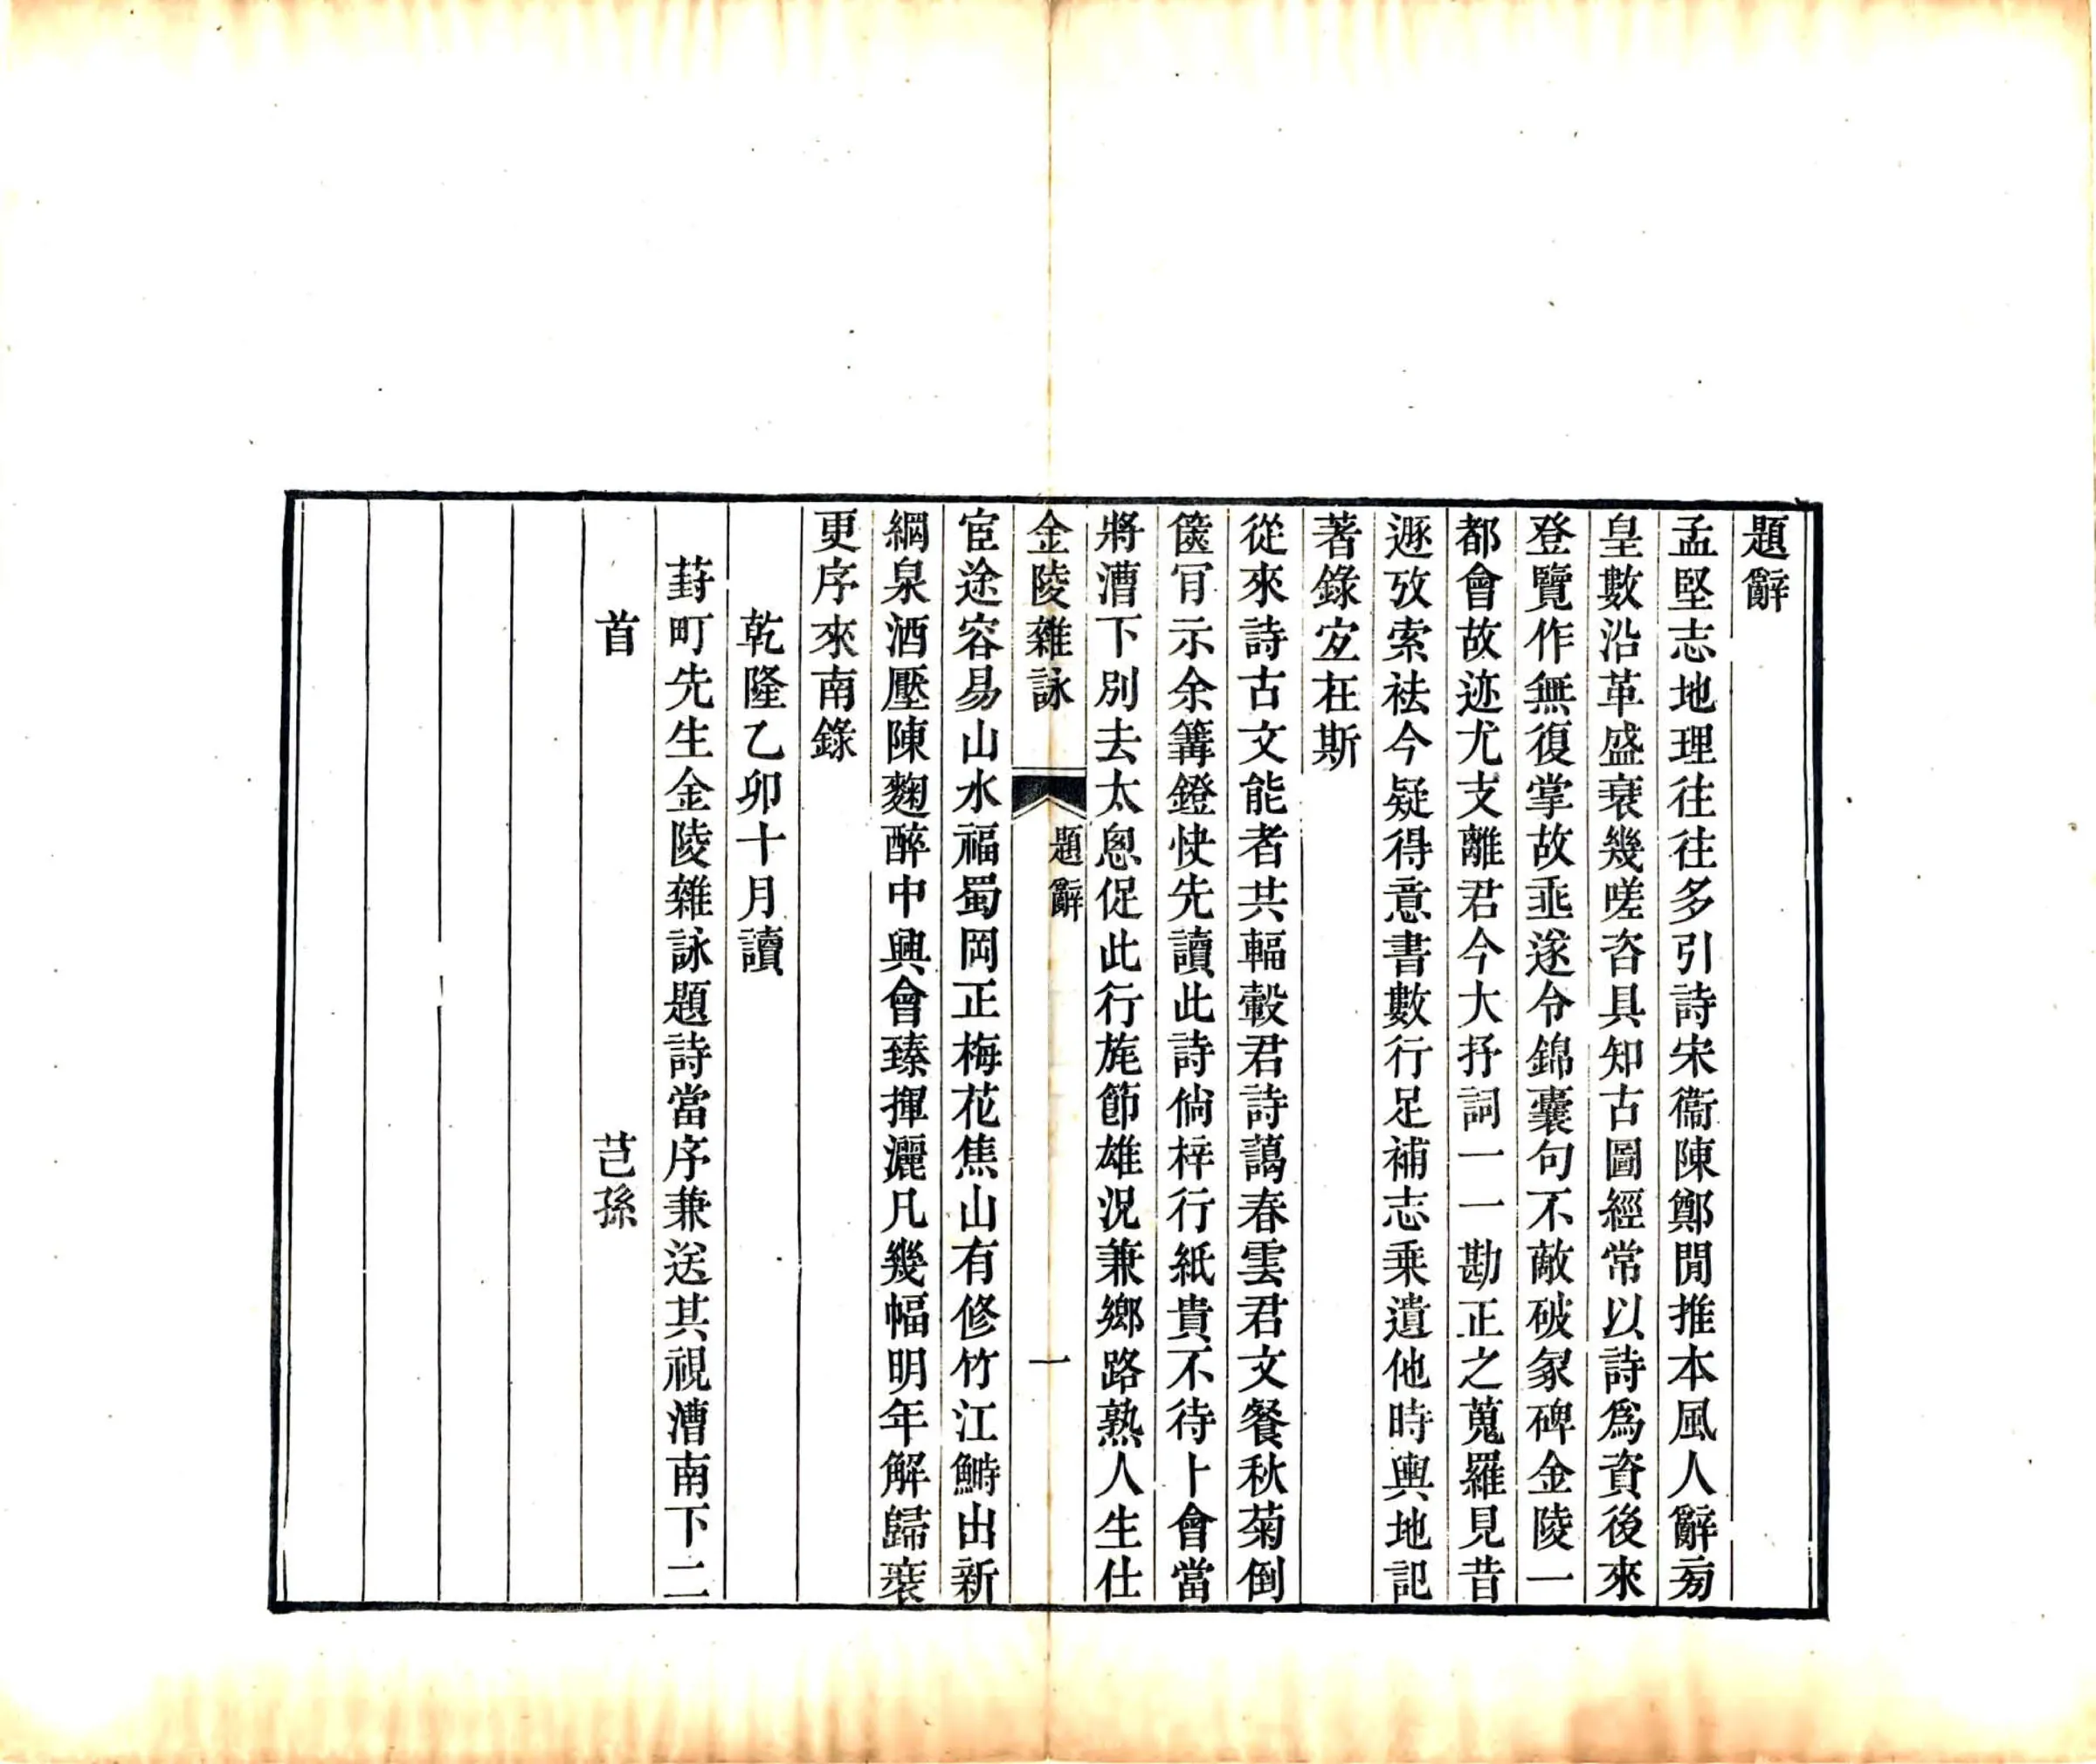 題辭
孟堅志地理往往多引詩宋衞陳鄭閒推本風人辭㫄
皇數沿革盛衰幾嗟咨具知古圖經常以詩爲資後來
登覽作無復掌故乖遂令錦囊句不敵破冢碑金陵一
都會故迹尤支離君今大抒詞一一勘正之蒐羅見昔
遯攷索袪今疑得意書數行足補志乘遺他時輿地記
著錄宐在斯
從來詩古文能者共輻轂君詩藹春雲君文餐秋菊倒
篋肎示余篝鐙快先讀此詩倘梓行紙貴不待卜會當
將漕下別去太悤促此行旄節雄況兼鄉路熟人生仕
金陵雜詠
題辭
一
宦途容易山水福蜀岡正梅花焦山有修竹江鰣出新
綱泉酒壓陳麴醉中興會臻揮灑凡幾幅明年解歸裝
更序來南錄
乾隆乙卯十月讀
葑町先生金陵雜詠題詩當序兼送其視漕南下二
首
芑孫